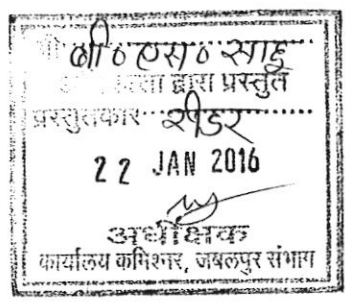 श्री बी०एस० साहू
द्वारा प्रस्तुत
प्रस्तुतकार रीडर
22 JAN 2016
अधीक्षक
कार्यालय कमिश्नर, जबलपुर संभाग